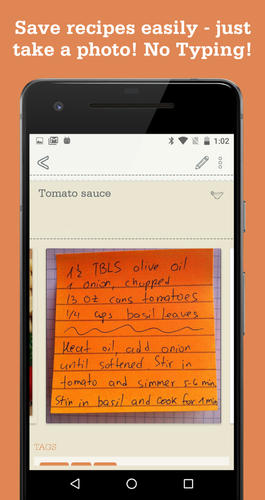 Save recipes easily - just
take a photo! No Typing!
1:02
Tomato sauce
1½ TBLS olive oil
1 onion, chopped
13 oz cans tomatoes
1/4 cps basil leaves
Heat oil, add onion
until softened Stir in
tomato and simmer 5-6 min
Stir in basil and cook for 1 min
TAGS